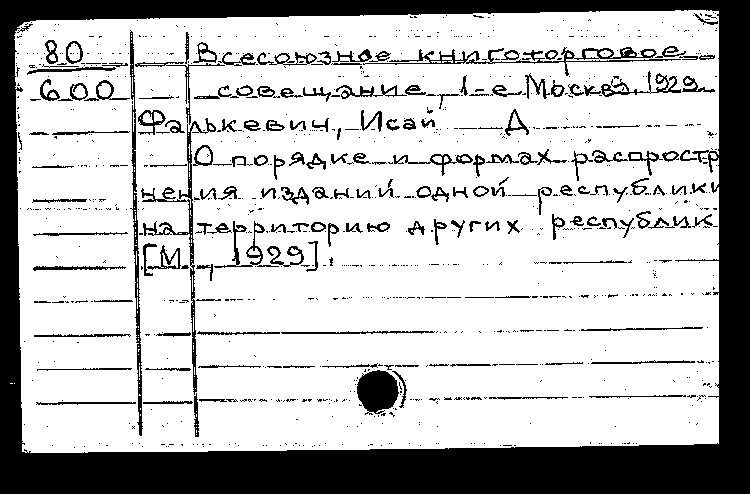 80 Всесоюзное книготорговое
600 совещание, 1-е Москва, 1929
Фалькевич, Исай Д
О порядке и формах распростр
нения изданий одной республики
на территорию других республик
[М., 1929].